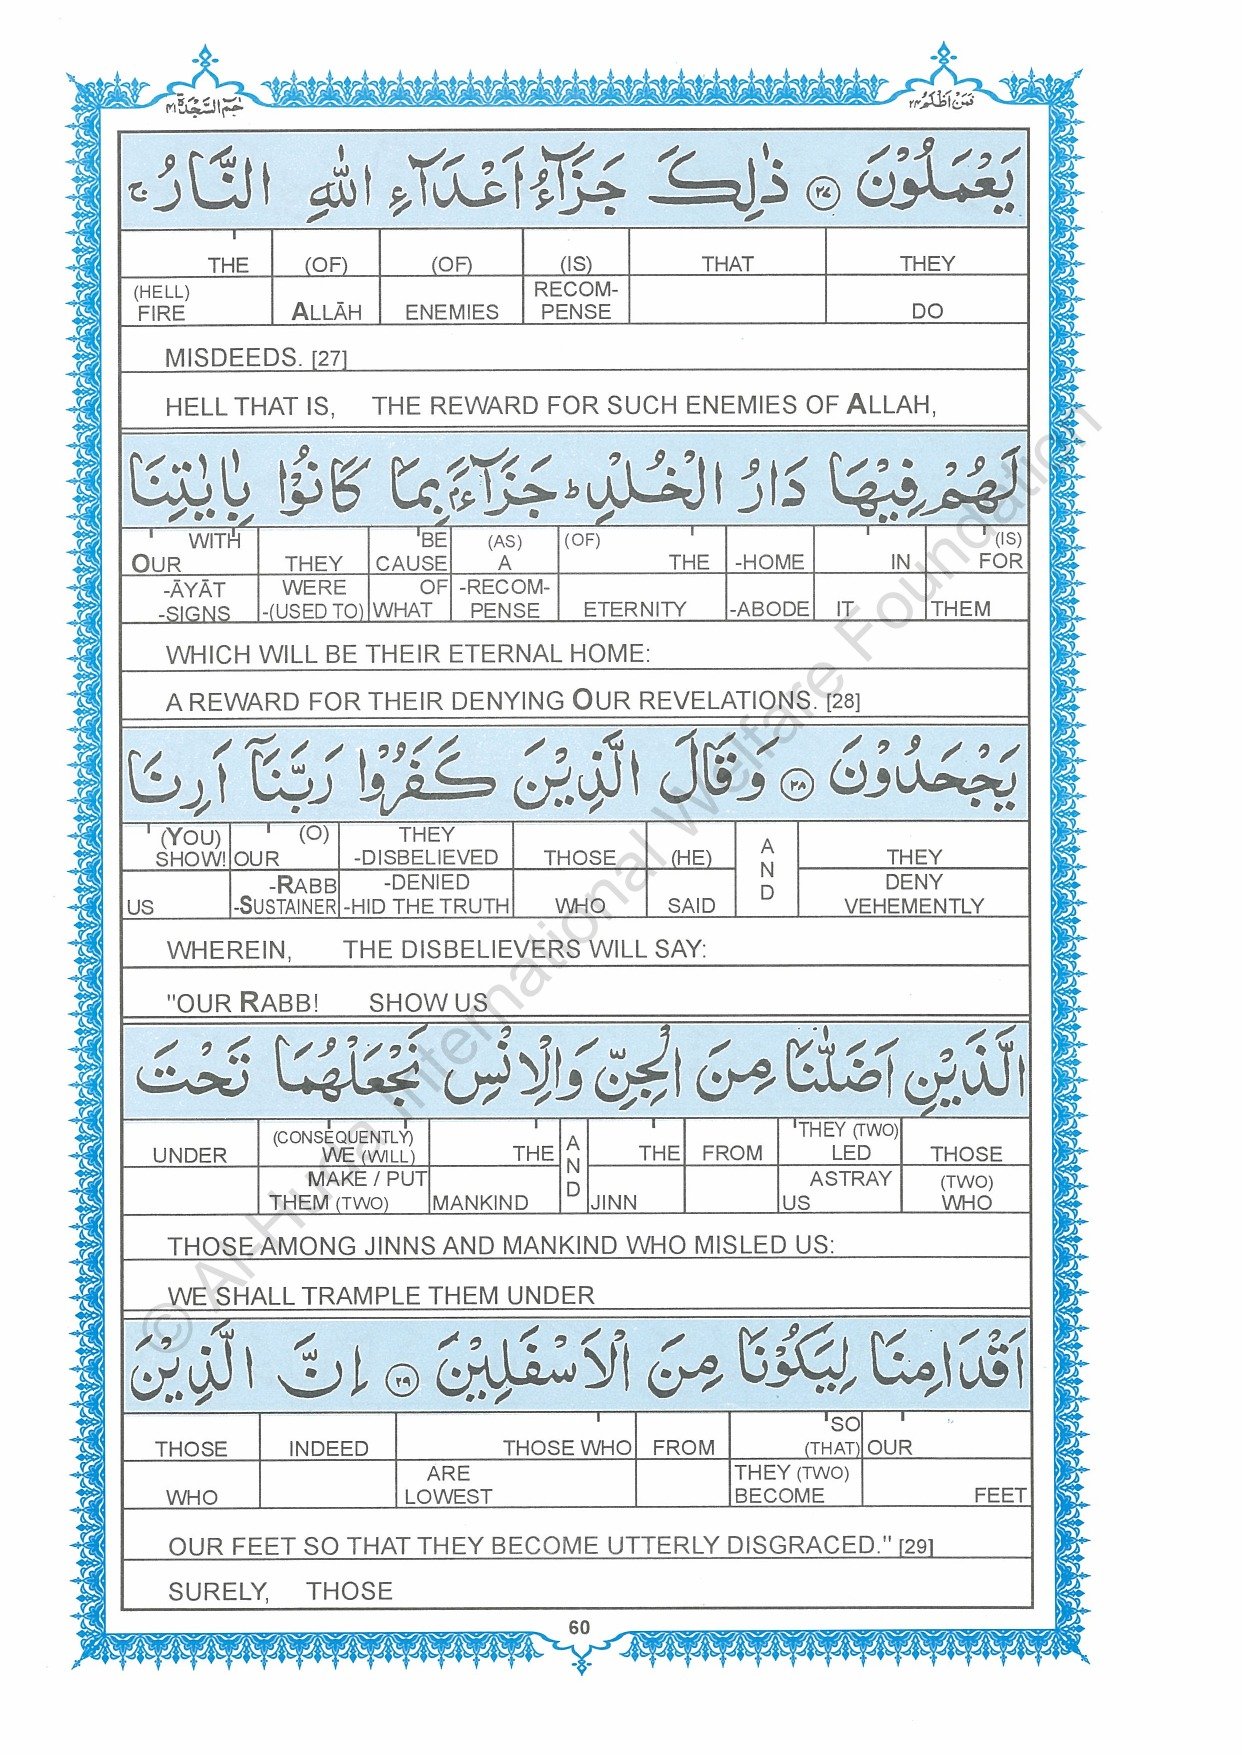 فَمَنْ اَظْلَمُ ٢٤ حٰمٓ السَّجْدَةِ ٤١
يَعْمَلُوْنَ ٢٧ ذٰلِكَ جَزَآءُ اَعْدَآءِ اللّٰهِ النَّارُ ج
THE (OF) (OF) (IS) THAT THEY
(HELL) FIRE ALLĀH ENEMIES RECOM-PENSE DO
MISDEEDS. [27]
HELL THAT IS, THE REWARD FOR SUCH ENEMIES OF ALLAH,
لَهُمْ فِيْهَا دَارُ الْخُلْدِ ط جَزَآءًۢ بِمَا كَانُوْا بِاٰيٰتِنَا
WITH OUR THEY BE CAUSE (AS) A (OF) THE -HOME IN (IS) FOR
-ĀYĀT -SIGNS WERE -(USED TO) OF WHAT -RECOM-PENSE ETERNITY -ABODE IT THEM
WHICH WILL BE THEIR ETERNAL HOME:
A REWARD FOR THEIR DENYING OUR REVELATIONS. [28]
يَجْحَدُوْنَ ٢٨ وَقَالَ الَّذِيْنَ كَفَرُوْا رَبَّنَآ اَرِنَا
(YOU) SHOW! (O) OUR THEY -DISBELIEVED THOSE (HE) AND THEY
US -RABB -SUSTAINER -DENIED -HID THE TRUTH WHO SAID DENY VEHEMENTLY
WHEREIN, THE DISBELIEVERS WILL SAY:
"OUR RABB! SHOW US
الَّذَيْنِ اَضَلّٰنَا مِنَ الْجِنِّ وَالْاِنْسِ نَجْعَلْهُمَا تَحْتَ
UNDER (CONSEQUENTLY) WE (WILL) THE AND THE FROM THEY (TWO) LED THOSE
MAKE / PUT THEM (TWO) MANKIND JINN ASTRAY US (TWO) WHO
THOSE AMONG JINNS AND MANKIND WHO MISLED US:
WE SHALL TRAMPLE THEM UNDER
اَقْدَامِنَا لِيَكُوْنَا مِنَ الْاَسْفَلِيْنَ ٢٩ اِنَّ الَّذِيْنَ
THOSE INDEED THOSE WHO FROM SO (THAT) OUR
WHO ARE LOWEST THEY (TWO) BECOME FEET
OUR FEET SO THAT THEY BECOME UTTERLY DISGRACED." [29]
SURELY, THOSE
60
© Al-Huda International Welfare Foundation